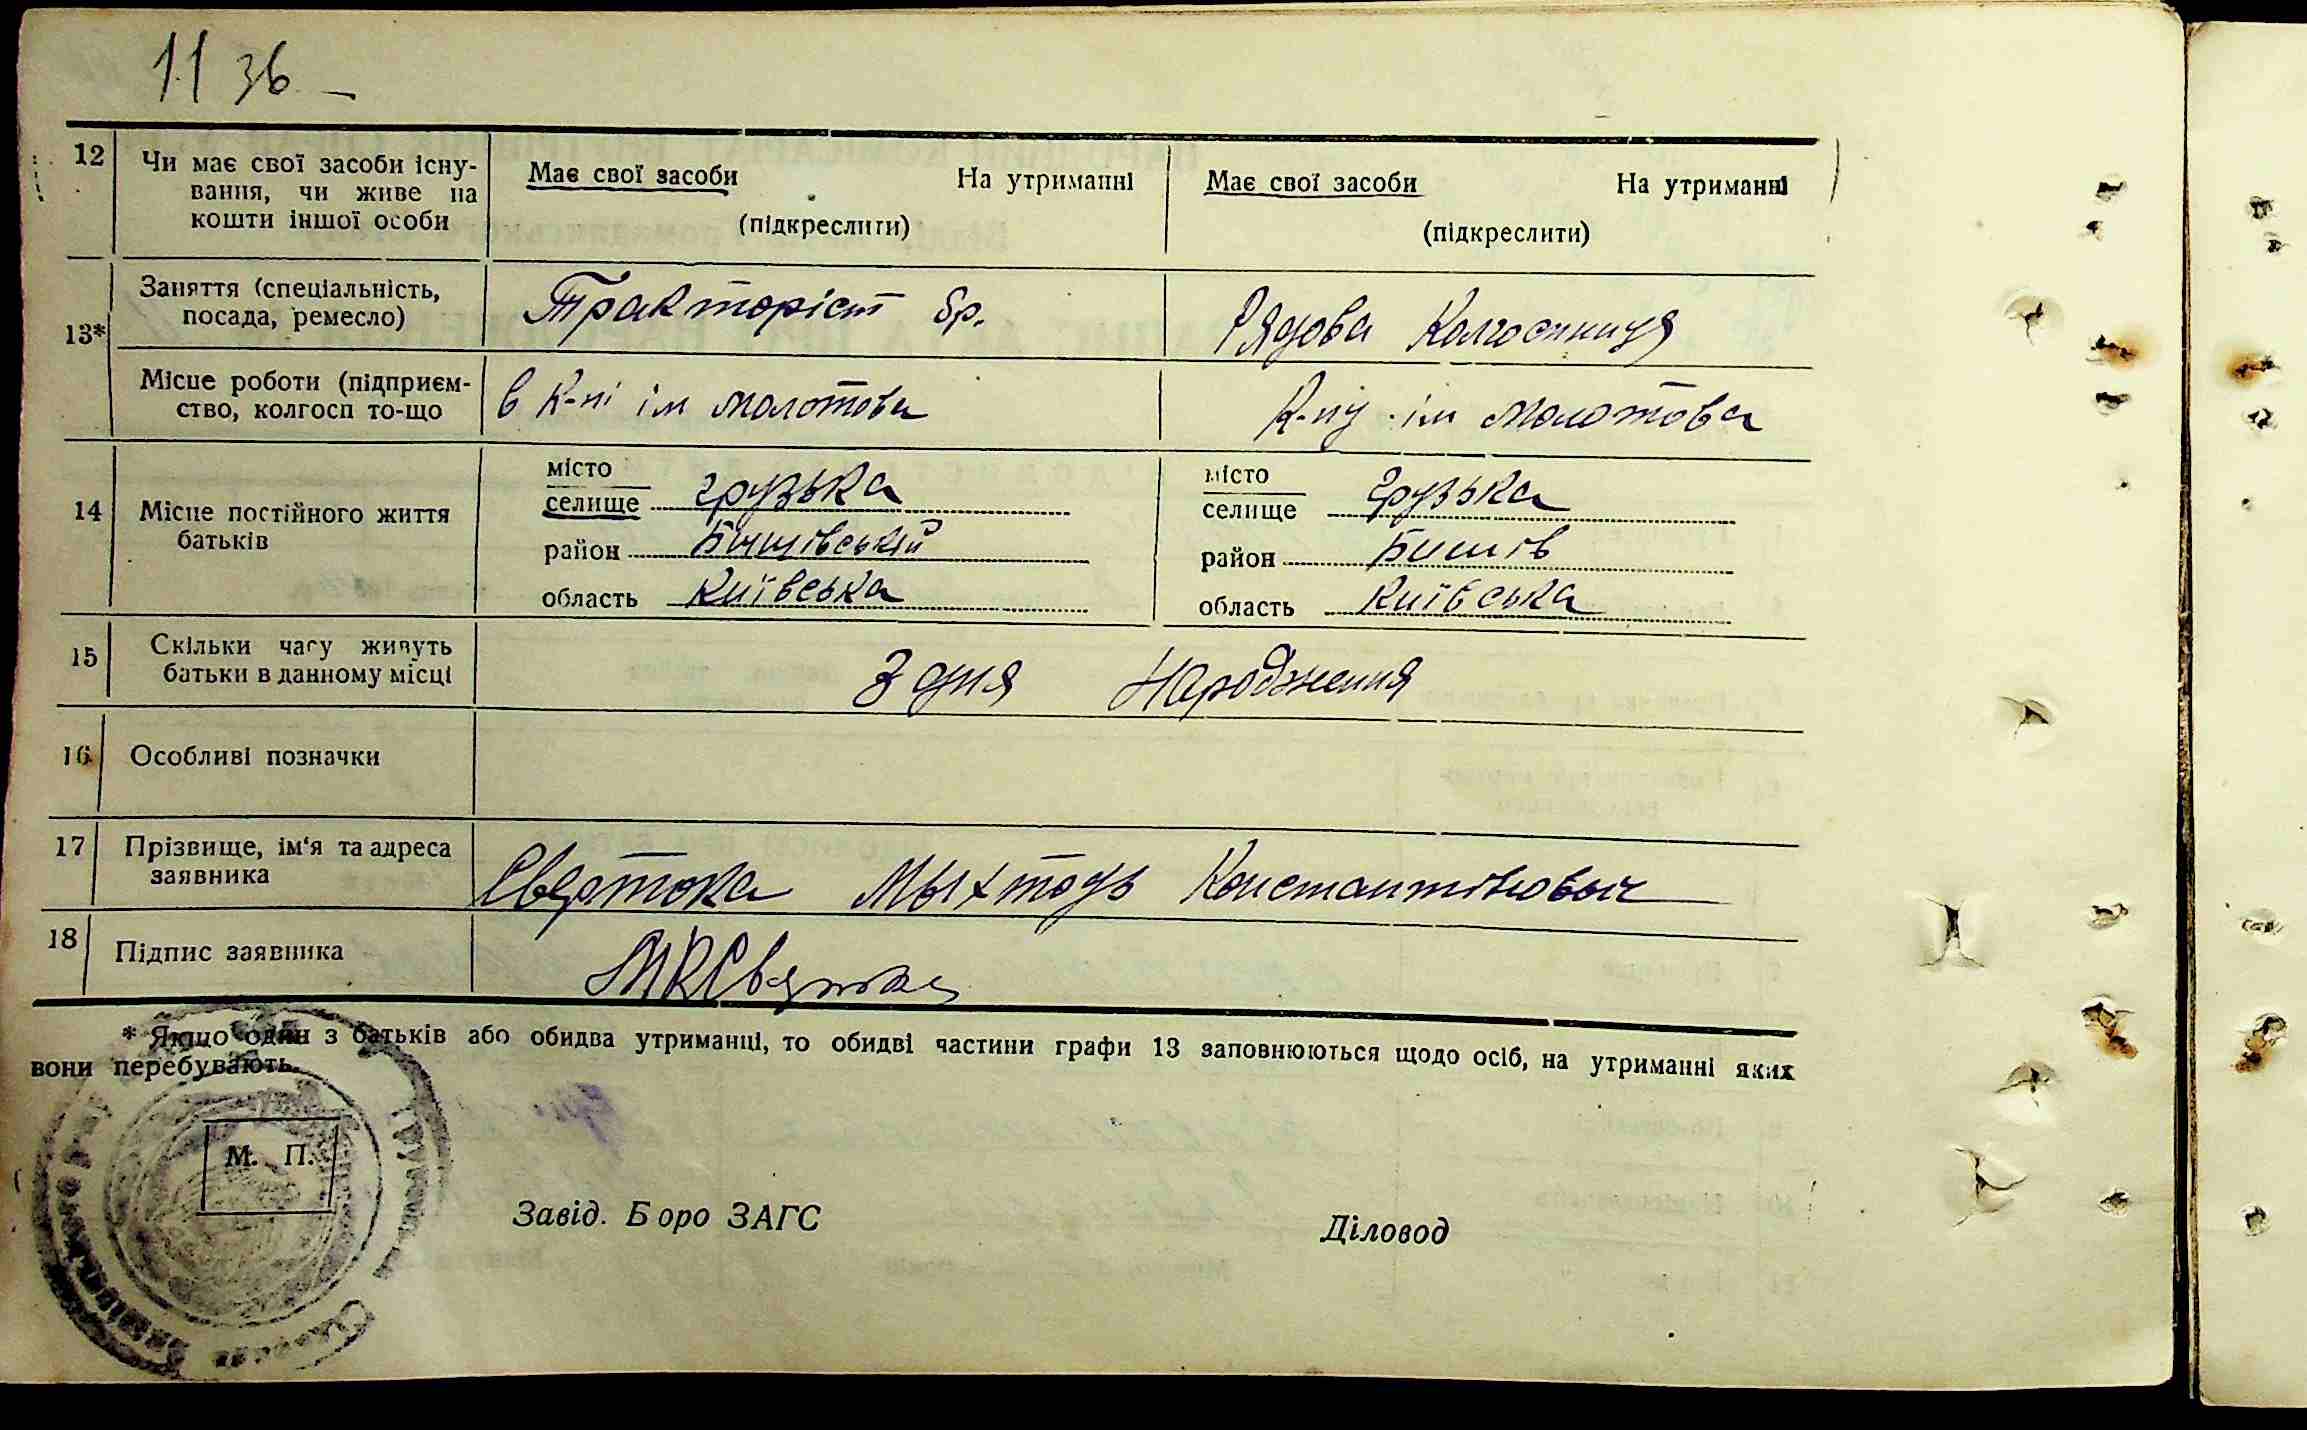 11 36 —
12 Чи має свої засоби існу- Має свої засоби На утриманні Має свої засоби На утриманні
вання, чи живе на
кошти іншої особи (підкреслити) (підкреслити)
13* Заняття (спеціальність, Тракторіст бр. Рядова Колгоспниця
посада, ремесло)
Місце роботи (підприєм- в К-пі ім Молотова К-пу ім Молотова
ство, колгосп то-що
14 Місце постійного життя батьків
місто
селище Грузька
район
область Київська
місто
селище Грузька
район Бишів
область Київська
15 Скільки часу живуть З дня Народження
батьки в данному місці
16 Особливі позначки
17 Прізвище, ім'я та адреса
заявника Константіновыч
18 Підпис заявника
* Якщо один з батьків або обидва утриманці, то обидві частини графи 13 заповнюються щодо осіб, на утриманні яких
вони перебувають.
М. П.
Завід. Б оро ЗАГС Діловод